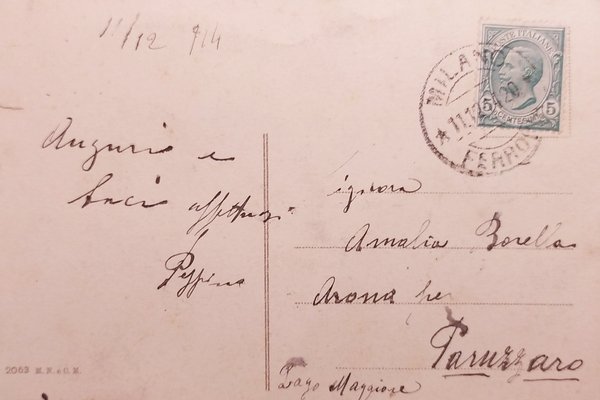 11/12 914
POSTE ITALIANE
5 5
CENTESIMI
MILANO
* 11.12.14.20
FERROVIA
Auguri e
baci affettuosi
Peppino
Signora
Amalia Borella
Arona per
Paruzzaro
Lago Maggiore
2063